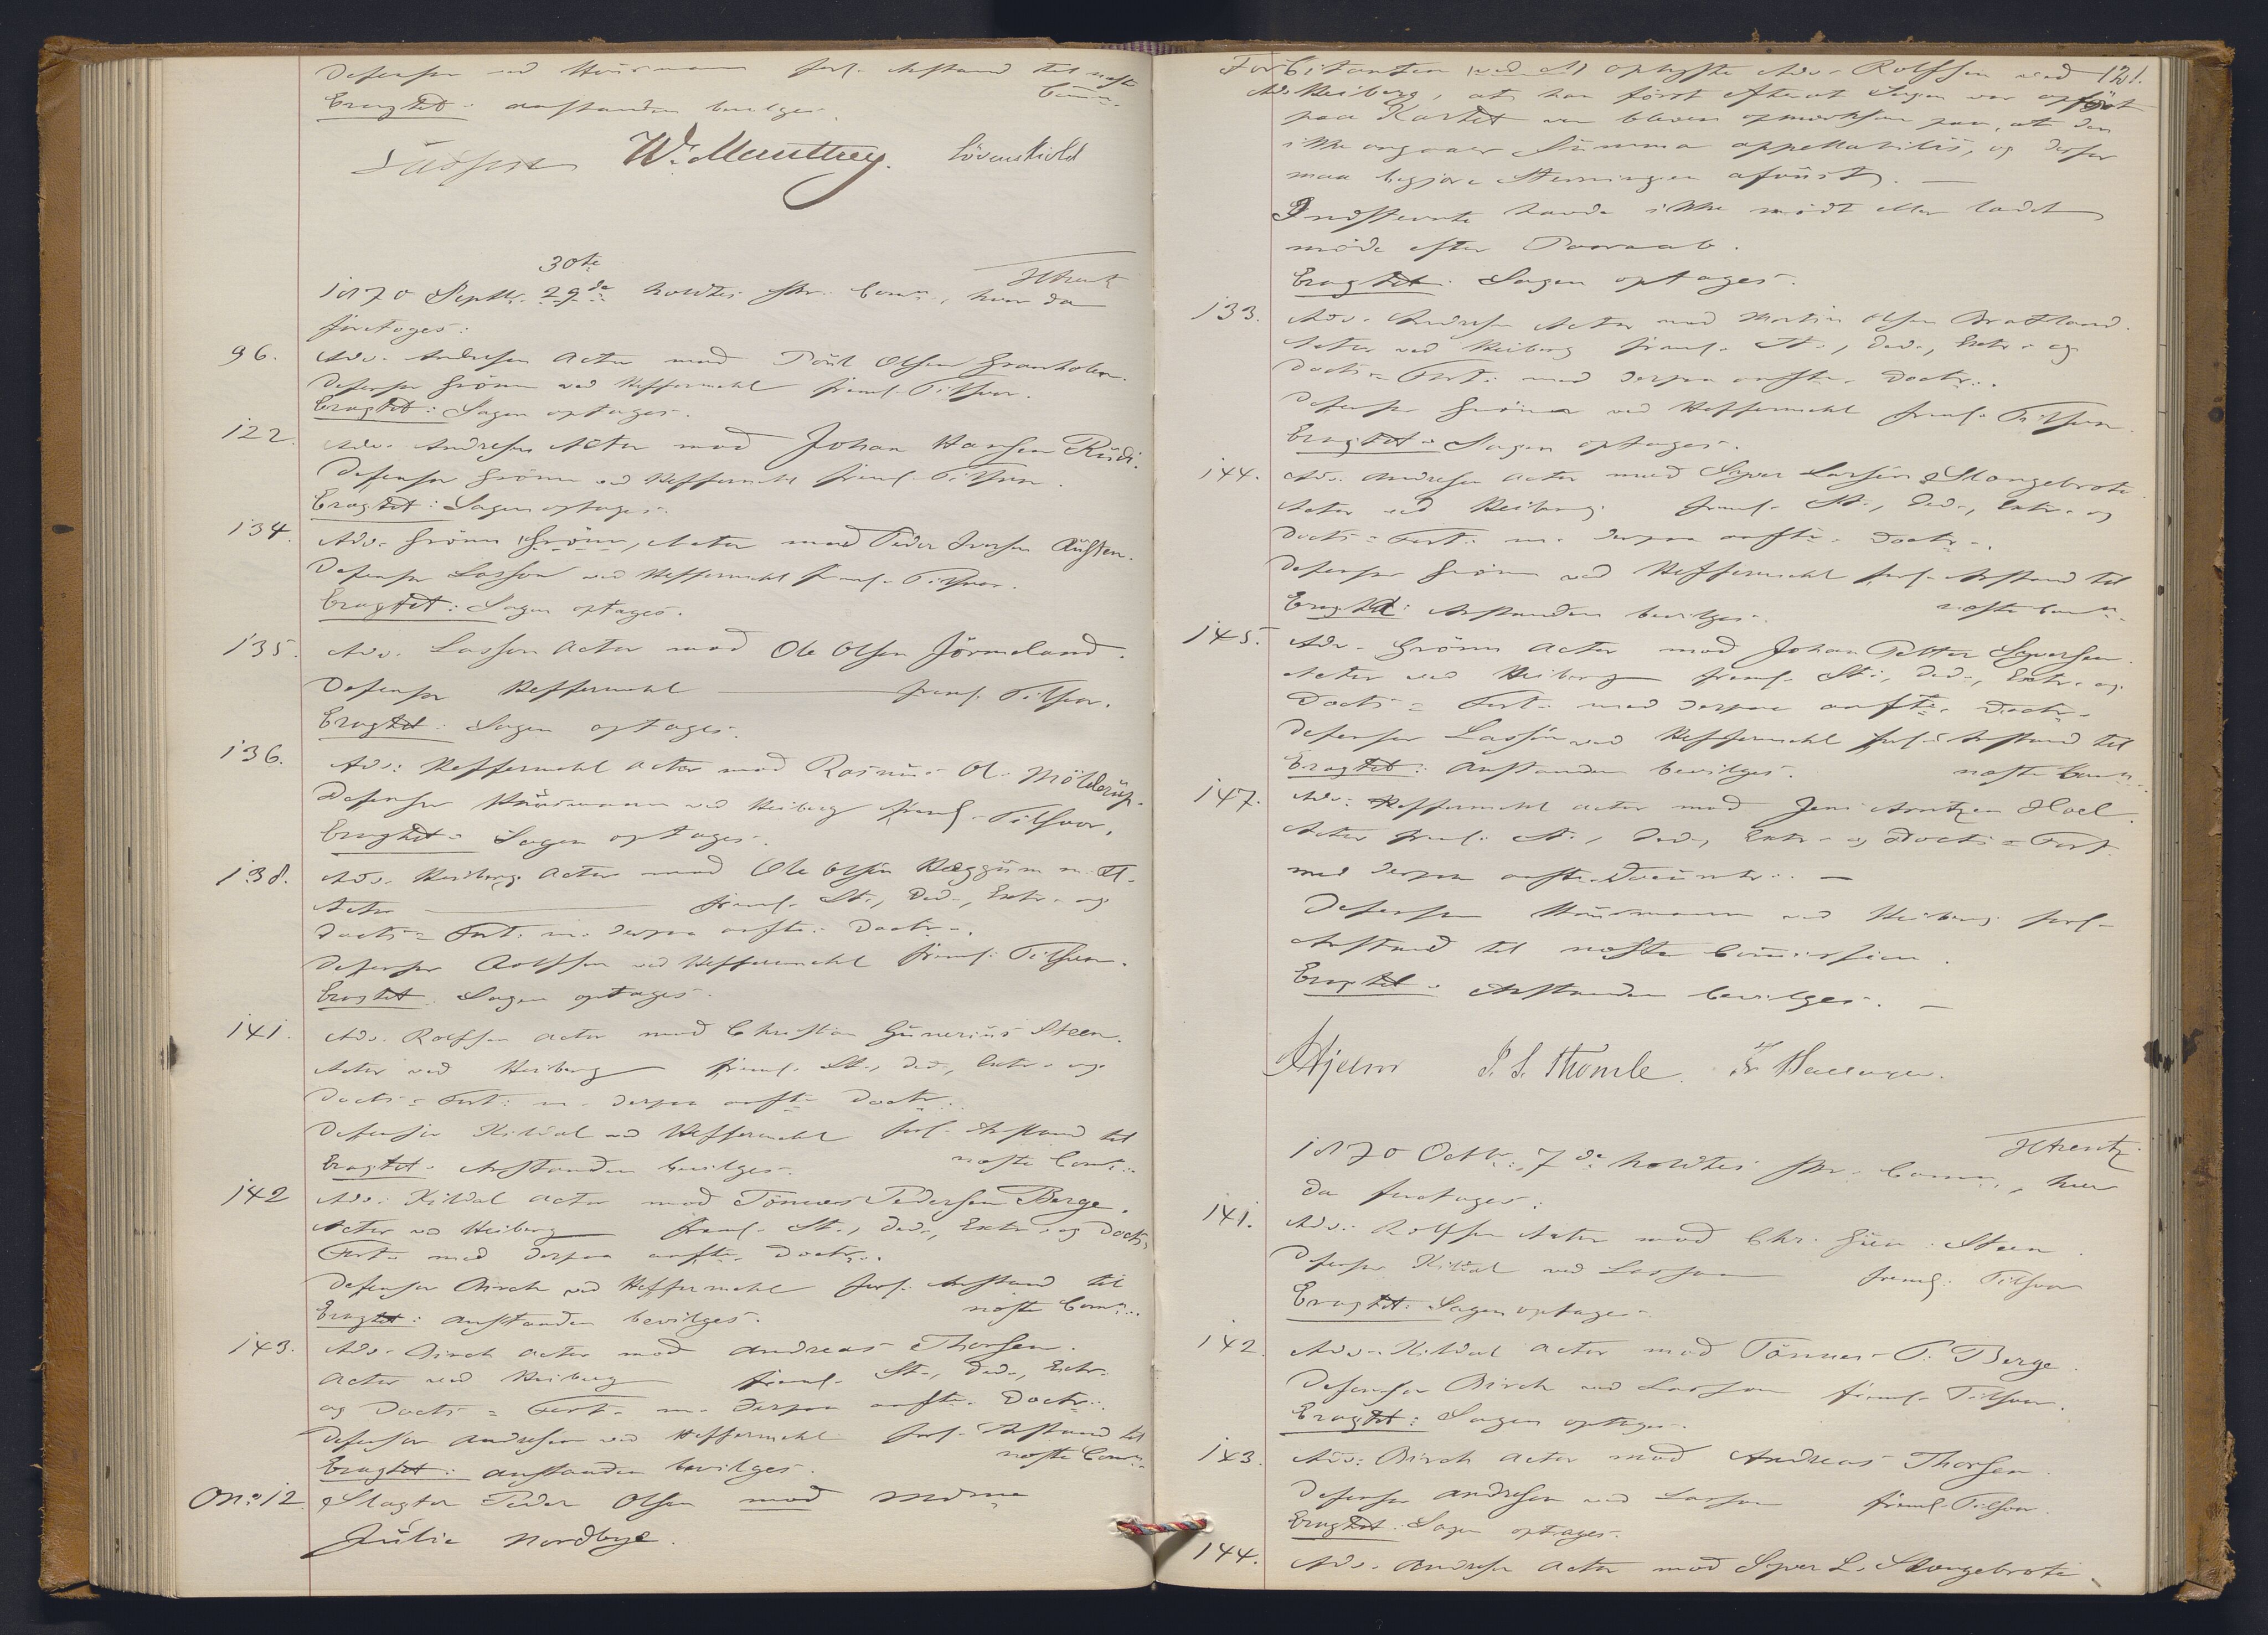 Defensor ved Huusmann forl. Anstand til næste
Comm.
Eragtet: Anstanden bevilges.
W. Manthey. Løvenskiold
30te
1870 Septbr. 29de holdtes Extr. Comm., hvor da
foretoges:
96. Adv. Andresen Actor mod Poul Olsen Granholen.
Defensor Grönn ved Heffermehl freml. Tilsvar.
Eragtet: Sagen optages.
122. Adv. Andresen Actor mod Johan Hansen Rudi.
Defensor Grönn ved Heffermehl freml. Tilsvar.
Eragtet: Sagen optages.
134. Adv. Grönn Grönn, Actor mod Peder Iversen
Defensor Lasson ved Heffermehl freml. Tilsvar.
Eragtet: Sagen optages.
135. Adv. Lasson Actor mod Ole Olsen Jörmeland.
Defensor Heffermehl freml. Tilsvar.
Eragtet: Sagen optages.
136. Adv: Heffermehl Actor mod Rasmus Ol. Mölderup.
Defensor Huusmann ved Heiberg freml. Tilsvar.
Eragtet: Sagen optages.
138. Adv. Heiberg Actor mod Ole Olsen Hæggum m. Fl.
Actor freml. St., Ded., Extr. og
Docts = Fort. m. derpaa anfte. Doctr.
Defensor Rolfsen ved Heffermehl freml. Tilsvar.
Eragtet. Sagen optages.
141. Adv. Rolfsen Actor mod Christian Gunerius Steen.
Actor ved Heiberg freml. St., Ded., Extr. og
Docts = Fort: m. derpaa anfte Doctr.
Defensor Kildal ved Heffermehl forl. Anstand til
Eragtet. Anstanden bevilges. næste Comm.
142 Adv. Kildal Actor mod Tönnes Pedersen Berge.
Actor ved Heiberg freml. St., Ded., Extr. og Docts
Fort. med derpaa anfte. Doctr.
Defensor Birch ved Heffermehl forl. Anstand til
Eragtet: Anstanden bevilges. næste Comm.
143. Adv. Birch Actor mod Andreas Thorsen.
Actor ved Heiberg freml. St., Ded., Extr.
og Docts = Fort. m. derpaa anfte. Doctr.
Defensor Andresen ved Heffermehl forl. Anstand til
næste Comm.
Eragtet: Anstanden bevilges.
No 12. Slagter Peder Olsen mod Mdme
Julie Nordbye.
121.
Citanten ved oplyste Adv. Rolfsen ved
Adv Heiberg, at han först efterat Sagen var opfört
paa Kartet var bleven opmerksom paa, at den
ikke angaaer Summa appellabilis, og derfor
maa begjære Stevningen afviist. —
Indstevnte havde ikke mödt eller ladet
möde efter Paaraab.
Eragtet: Sagen optages.
133. Adv. Andresen Actor mod Martin Olsen Bratland.
Actor ved Heiberg freml. St., Ded., Extr. og
Docts = Fort. med derpaa anfte. Doctr.
Defensor Grönn ved Heffermehl freml. Tilsvar.
Eragtet. Sagen optages.
144. Adv. Andresen Actor mod Syver Larsen Slangebrote
Actor ved Heiberg freml. St., Ded., Extr. og
Docts = Fort. m. derpaa anfte. Doctr.
Defensor Grönn ved Heffermehl forl. Anstand til
Eragtet: Anstanden bevilges. næste Comm.
145. Adv. Grönn Actor mod Johan Petter Syversen.
Actor ved Heiberg freml. St., Ded., Extr. og
Docts = Fort. med derpaa anfte. Doctr.
Defensor Lasson ved Heffermehl forl. Anstand til
Eragtet: Anstanden bevilges. næste Comm.
147. Adv. Heffermehl Actor mod Jens Arntzen Hoel.
Actor freml. St., Ded., Extr. og Docts = Fort.
med derpaa anfte. Documtr. —
Defensor Huusmann ved Heiberg forl.
Anstand til næste Commission.
Eragtet. Anstanden bevilges. —
Hjelm J. S. Thomle.
1870 Octbr. 7de holdtes Extr. Comm., hvor
da foretoges:
141. Adv. Rolfsen Actor mod Chr. Gun. Steen
Defensor Kildal ved Lasson freml. Tilsvar
Eragtet: Sagen optages.
142. Adv. Kildal Actor mod Tönnes P. Berge.
Defensor Birch ved Lasson freml. Tilsvar.
Eragtet: Sagen optages.
143. Adv. Birch Actor mod Andreas Thorsen.
Defensor Andresen ved Lasson freml. Tilsvar.
Eragtet: Sagen optages.
144. Adv. Andresen Actor mod Syver L. Slangebrote